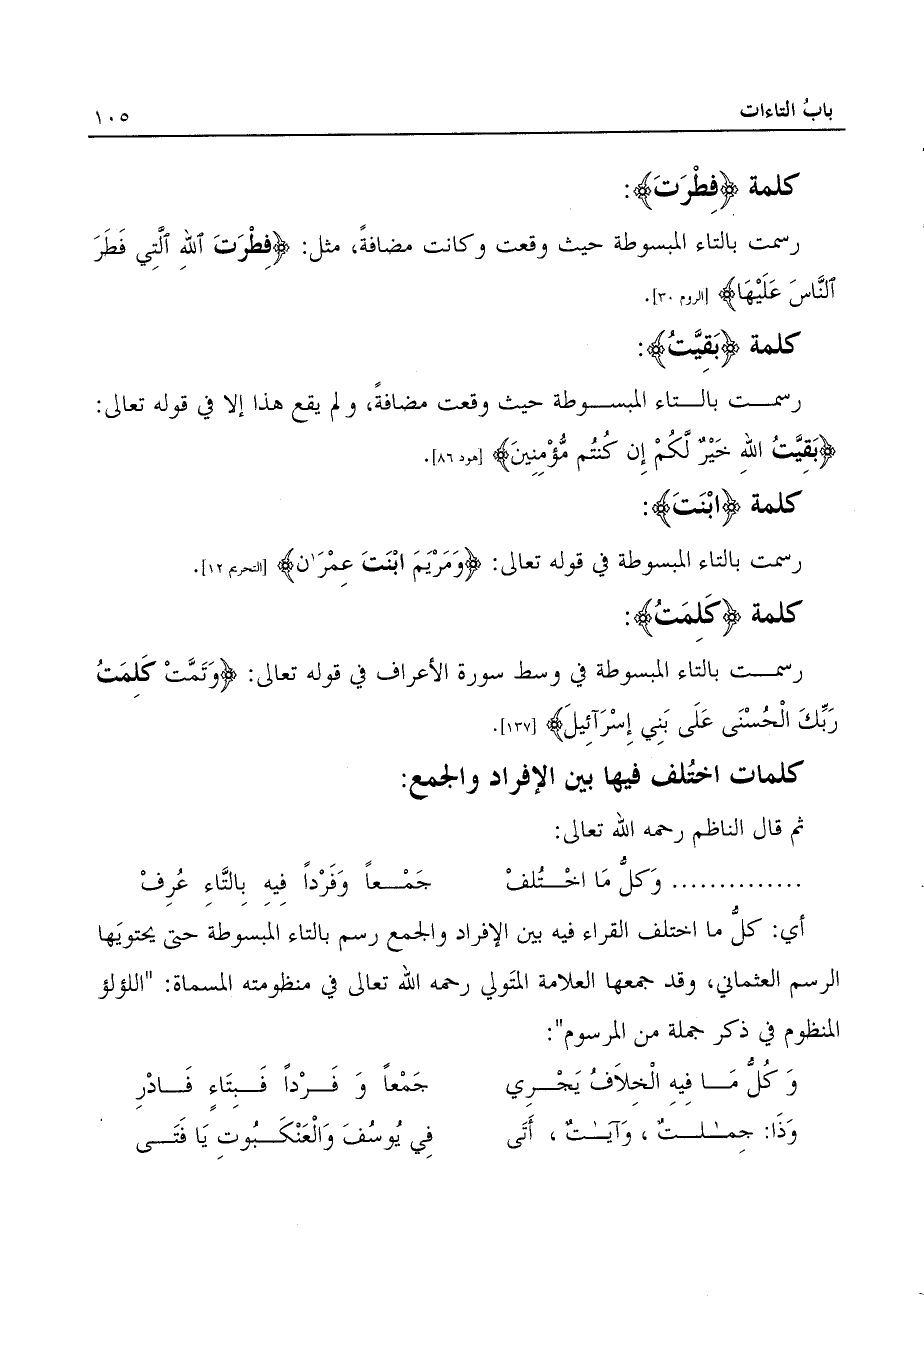 بابُ التاءات ١٠٥
كلمة ﴿فِطْرَتَ﴾:
رسمت بالتاء المبسوطة حيث وقعت وكانت مضافةً، مثل: ﴿فِطْرَتَ ٱللهِ ٱلَّتِي فَطَرَ
ٱلنَّاسَ عَلَيْهَا﴾ [الروم ٣٠].
كلمة ﴿بَقِيَّتُ﴾:
رسمت بالتاء المبسوطة حيث وقعت مضافةً، ولم يقع هذا إلا في قوله تعالى:
﴿بَقِيَّتُ اللهِ خَيْرٌ لَّكُمْ إِن كُنتُم مُّؤْمِنِينَ﴾ [هود ٨٦].
كلمة ﴿ابْنَتَ﴾:
رسمت بالتاء المبسوطة في قوله تعالى: ﴿وَمَرْيَمَ ابْنَتَ عِمْرَٰنَ﴾ [التحريم ١٢].
كلمة ﴿كَلِمَتُ﴾:
رسمت بالتاء المبسوطة في وسط سورة الأعراف في قوله تعالى: ﴿وَتَمَّتْ كَلِمَتُ
رَبِّكَ الْحُسْنَى عَلَى بَنِي إِسْرَآئِيلَ﴾ [١٣٧].
كلمات اختُلف فيها بين الإفراد والجمع:
ثم قال الناظم رحمه الله تعالى:
.............. وَكلُّ مَا اخْتُلفْ جَمْعاً وَفَرْداً فِيهِ بِالتَّاءِ عُرِفْ
أي: كلُّ ما اختلف القراء فيه بين الإفراد والجمع رسم بالتاء المبسوطة حتى يحتويَها
الرسم العثماني، وقد جمعها العلامة المتَولي رحمه الله تعالى في منظومته المسماة: "اللؤلؤ
المنظوم في ذكر جملة من المرسوم":
وَكُلُّ مَا فِيهِ الْخِلاَفُ يَجْرِي جَمْعاً وَفَرْداً فَبِتَاءٍ فَادْرِ
وَذَا: جِمَٰلَتٌ، وَآيَٰتٌ، أَتَى فِي يُوسُفَ وَالْعَنْكَبُوتِ يَا فَتَى